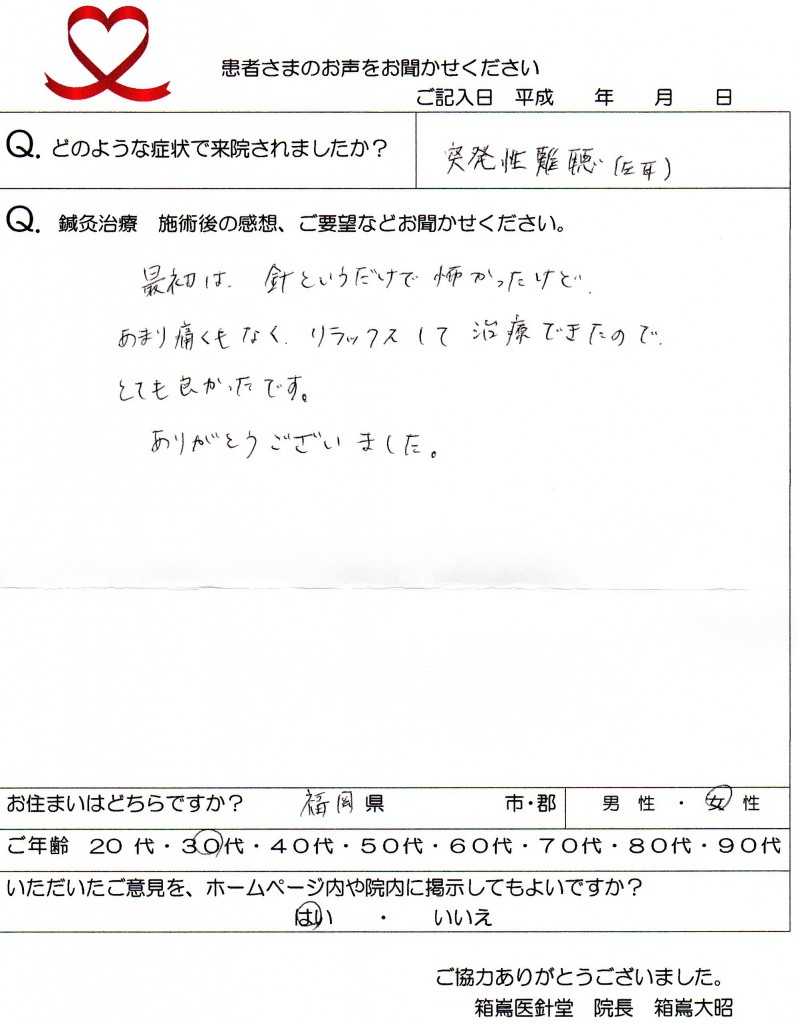 患者さまのお声をお聞かせください
ご記入日 平成 年 月 日
Q. どのような症状で来院されましたか？
突発性難聴 (左耳)
Q. 鍼灸治療 施術後の感想、ご要望などお聞かせください。
最初は、針というだけで怖かったけど、
あまり痛くもなく、リラックスして治療できたので、
とても良かったです。
ありがとうございました。
お住まいはどちらですか？ 福岡県 市・郡 男性・女性
ご年齢 20代・30代・40代・50代・60代・70代・80代・90代
いただいたご意見を、ホームページ内や院内に掲示してもよいですか？
はい ・ いいえ
ご協力ありがとうございました。
箱嶌医針堂 院長 箱嶌大昭